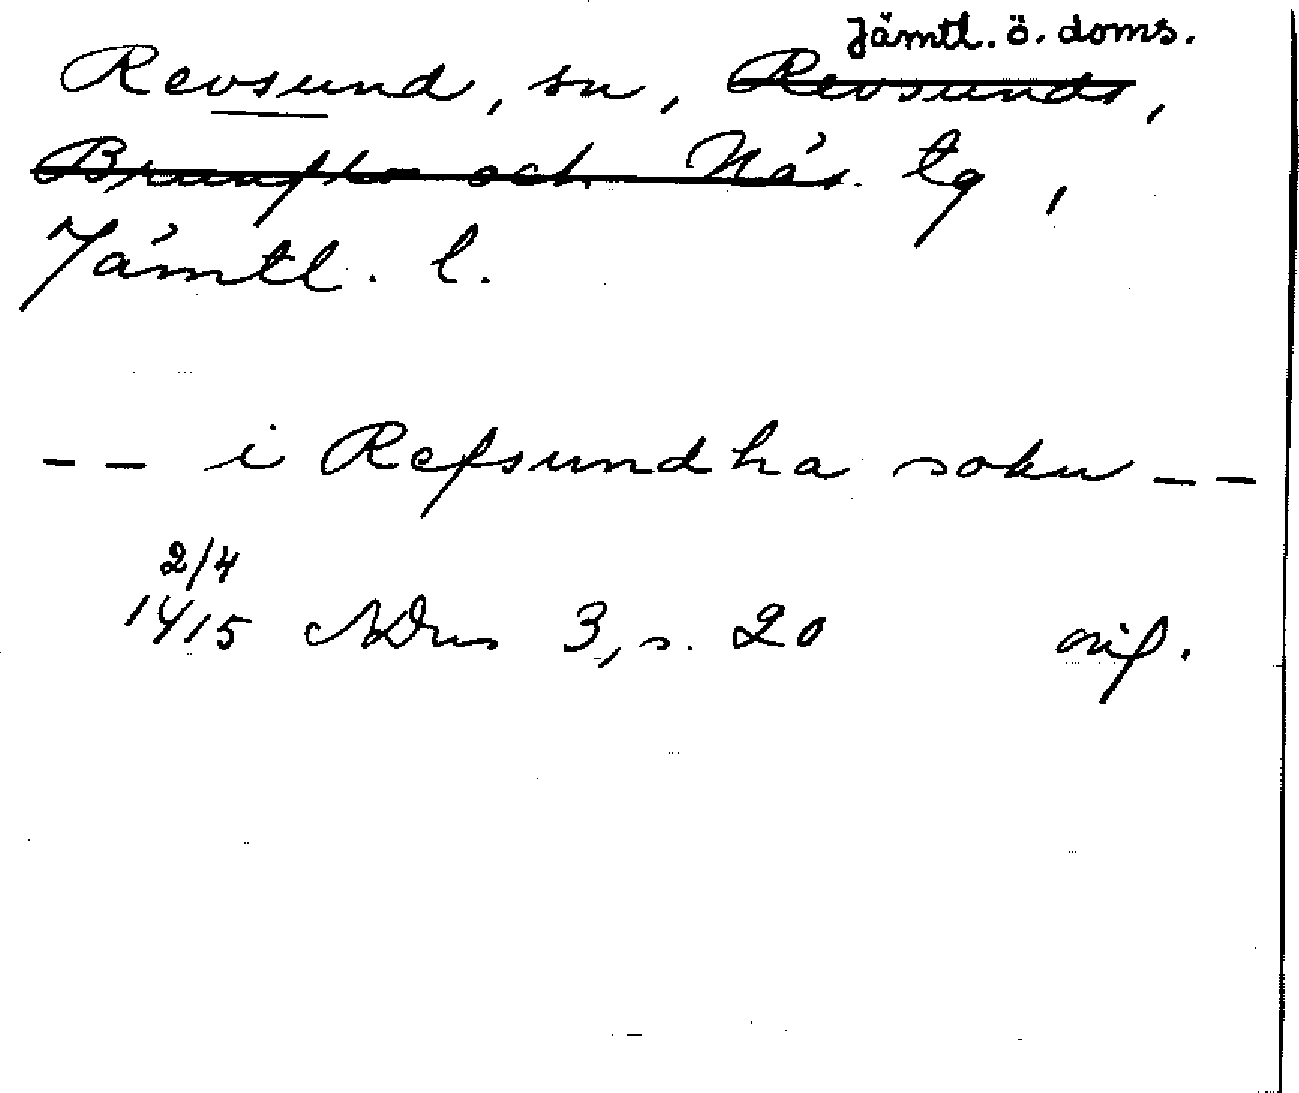 Jämtl. ö. doms.
Revsund, sn, Revsunds,
Brunflo och Näs tg,
Jämtl. l.
-- i Refsundha sokn --
2/4
1415 NDns 3, s. 20 orig.